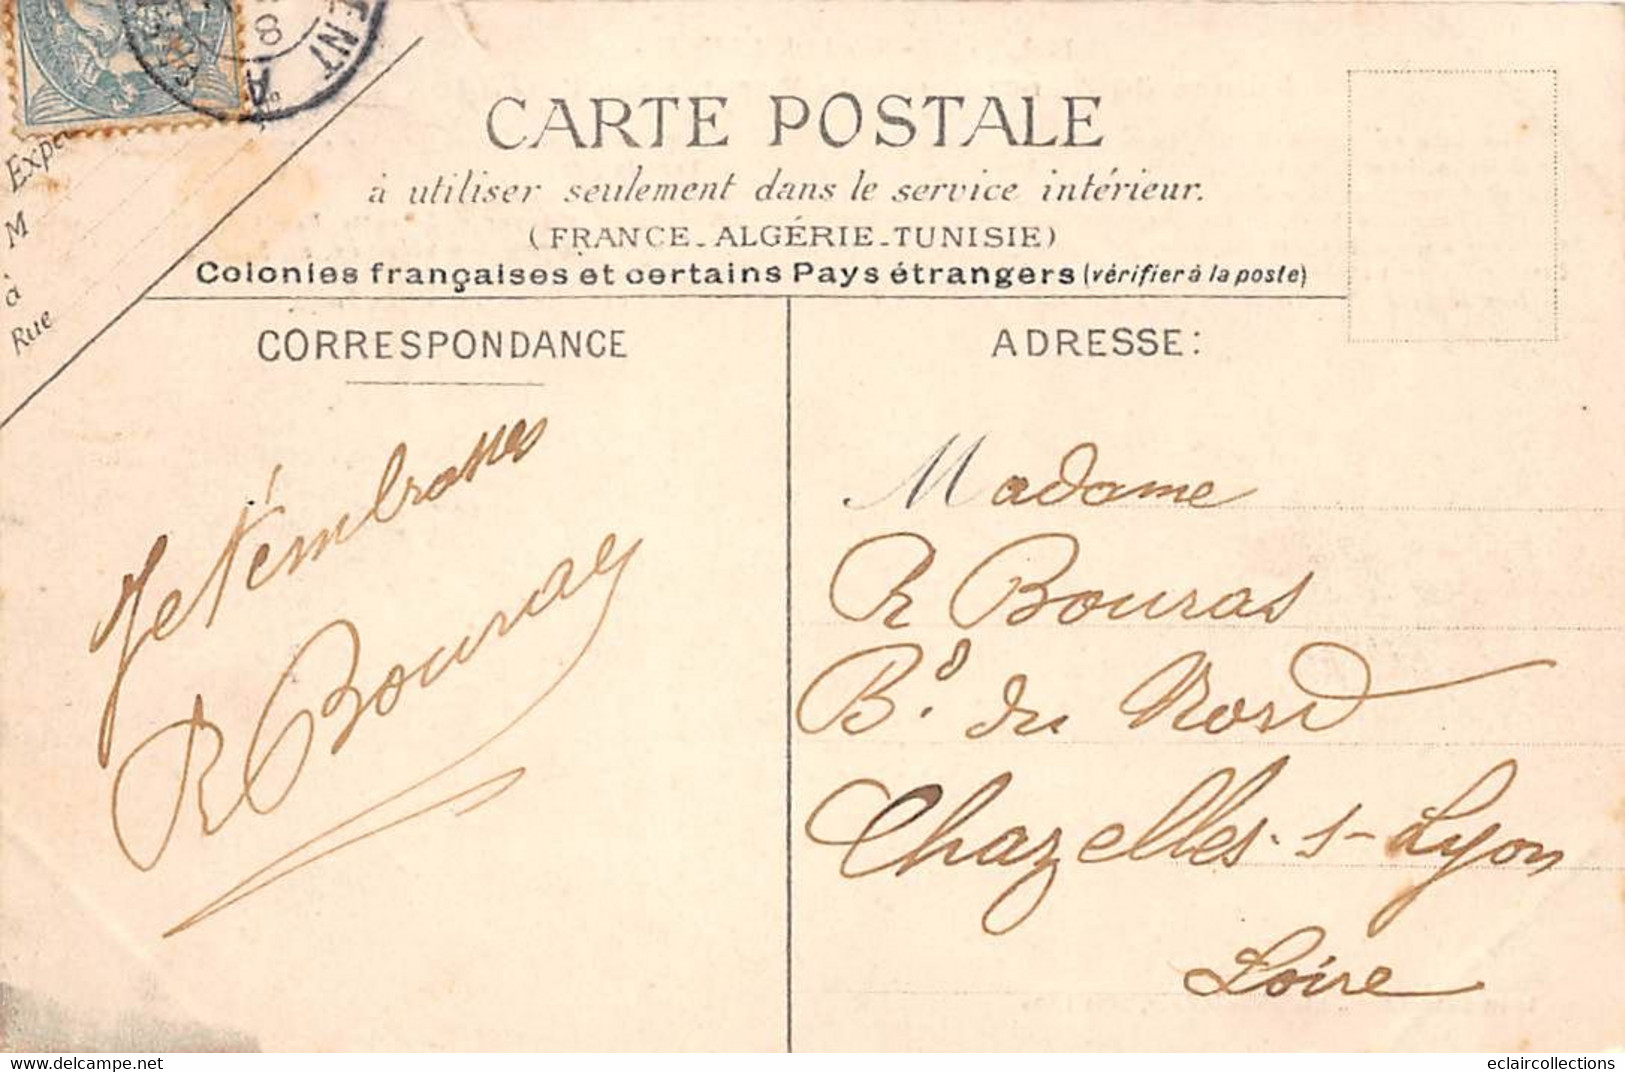 CARTE POSTALE
à utiliser seulement dans le service intérieur.
(FRANCE_ALGÉRIE_TUNISIE)
Colonies françaises et certains Pays étrangers (vérifier à la poste)
M
à
Rue
CORRESPONDANCE
ADRESSE:
Je t'émbrasses
R Bouras
Madame
R Bouras
Bd. du Nord
Chazelles-s-Lyon
Loire
eclaircollections